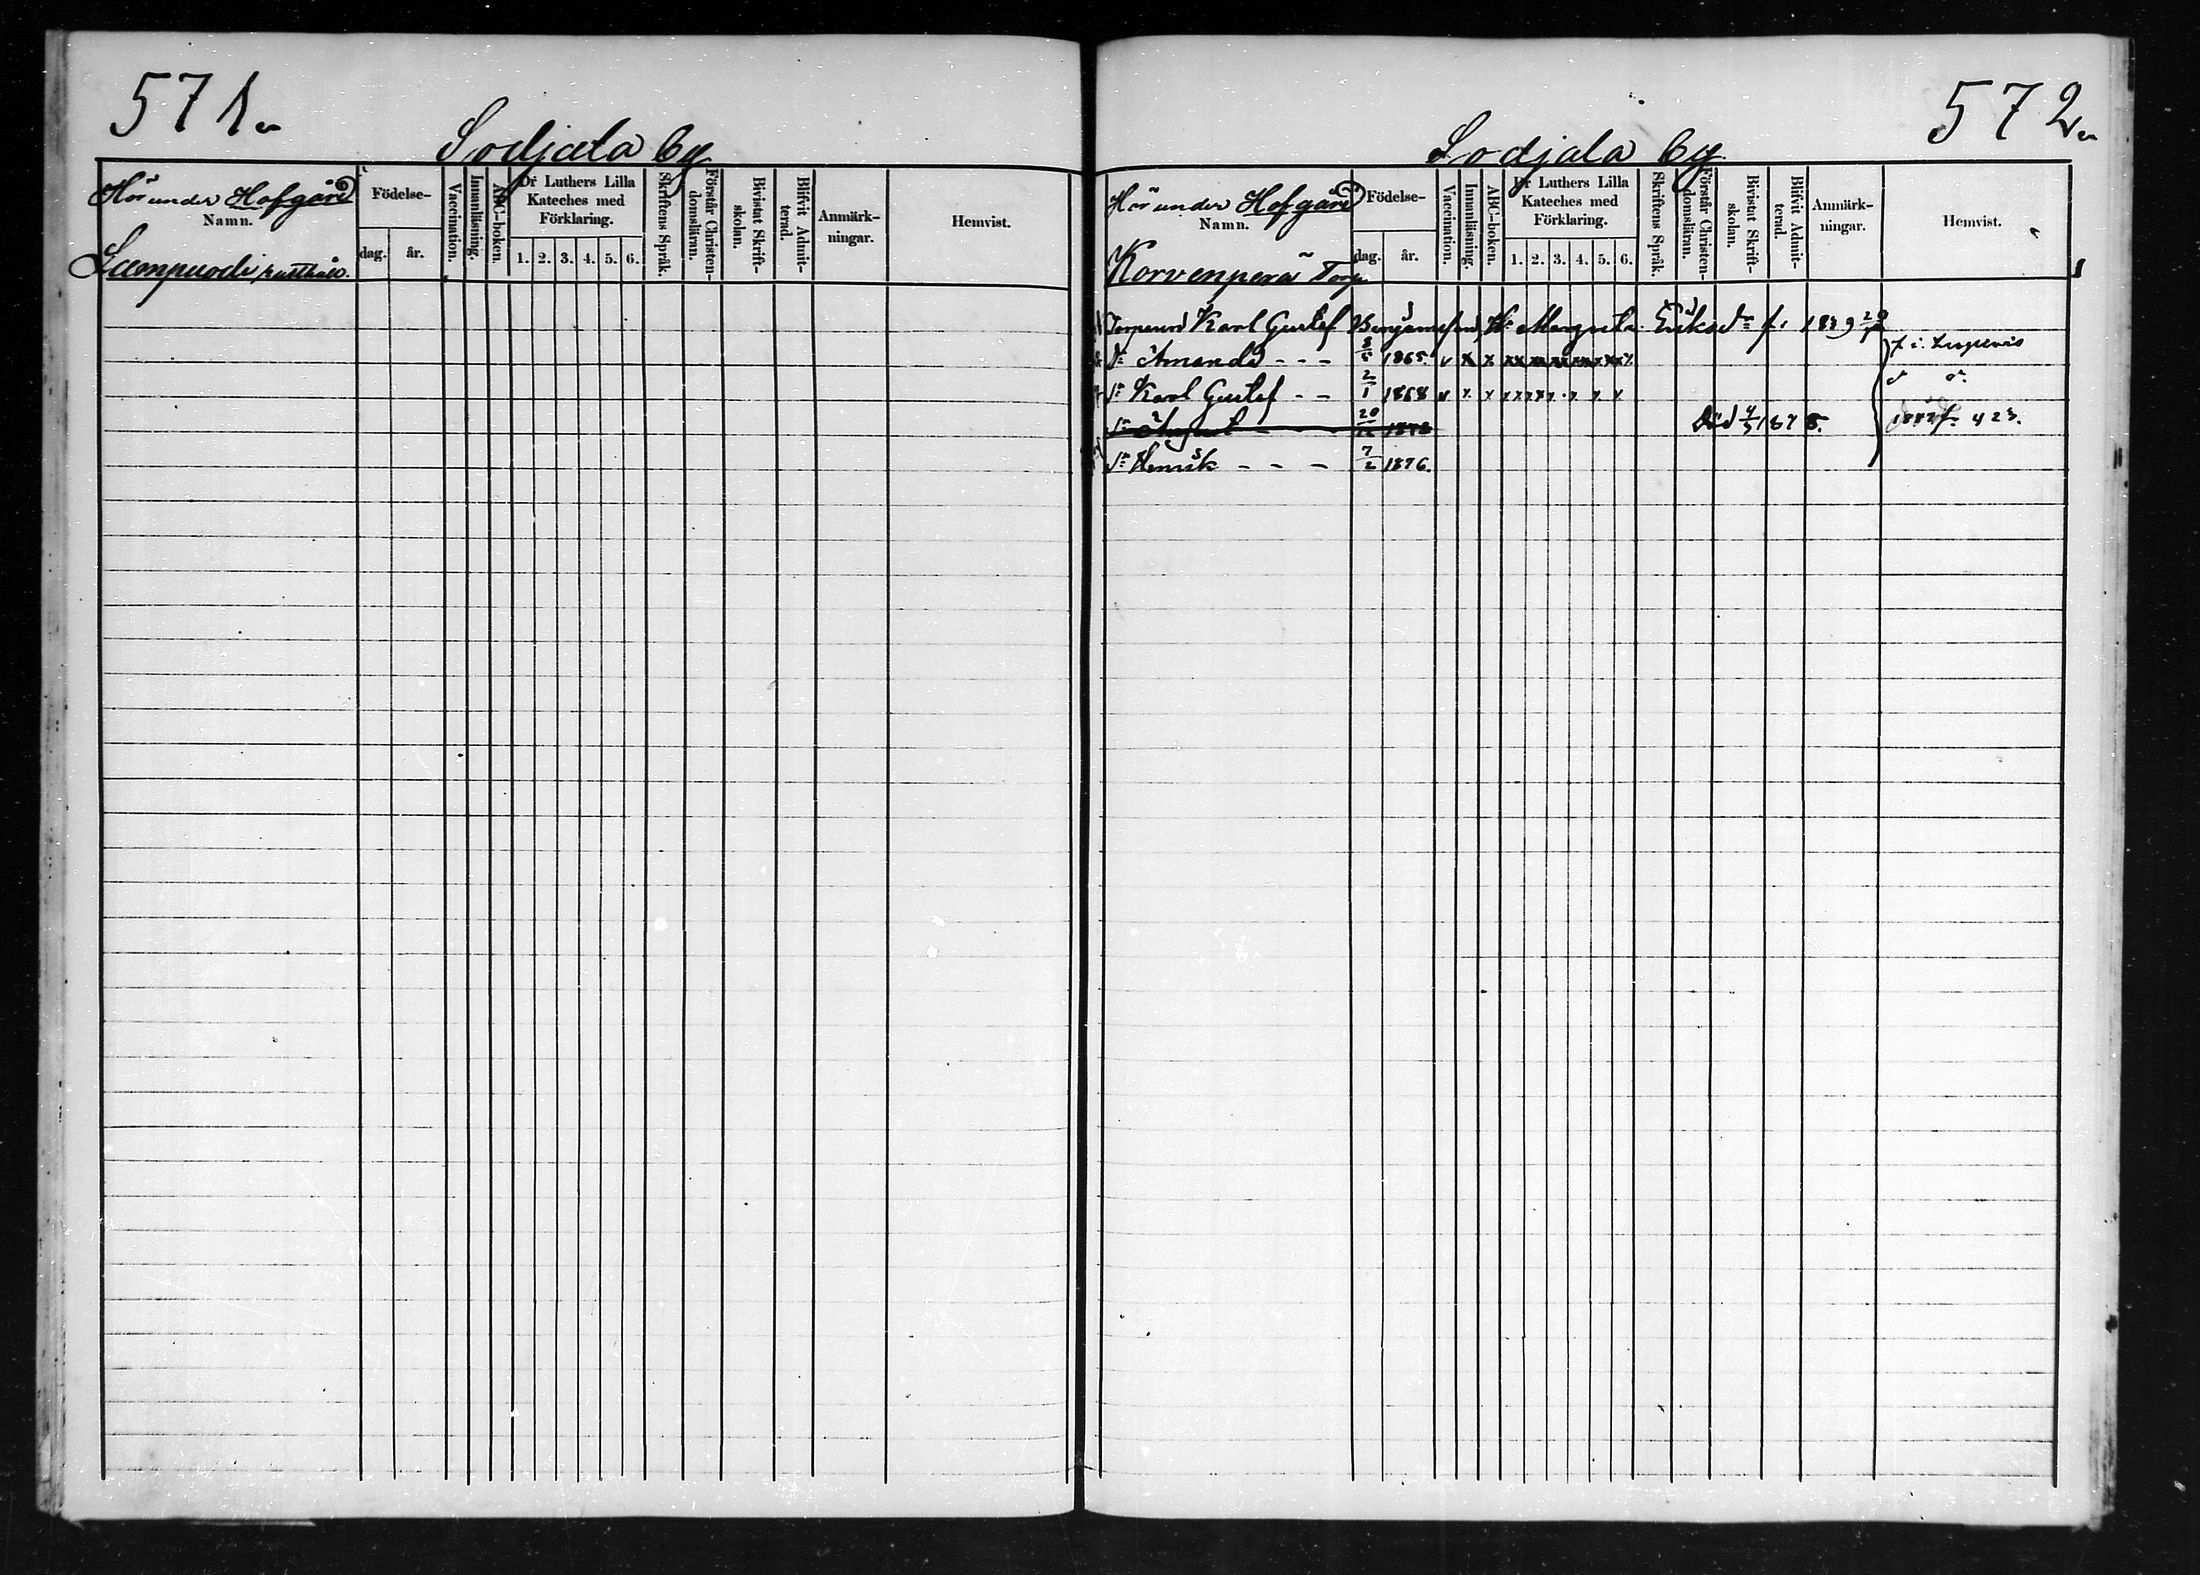 571
Sodjala by
Hör under Hofgård
Namn.
Födelse-
dag.
år.
Vaccination.
Innanläsning.
ABC-boken.
Dr Luthers Lilla
Kateches med
Förklaring.
1. 2. 3. 4. 5. 6.
Skriftens Språk.
Förstår Christen-
domsläran.
Bivistat Skrift-
skolan.
Blifvit Admit-
terad.
Anmärk-
ningar.
Hemvist.
572
Sodjala by
Hör under Hofgård
Namn.
Korvenperä Torp
Födelse-
dag.
år.
Vaccination.
Innanläsning.
ABC-boken.
Dr Luthers Lilla
Kateches med
Förklaring.
1. 2. 3. 4. 5. 6.
Skriftens Språk.
Förstår Christen-
domsläran.
Bivistat Skrift-
skolan.
Blifvit Admit-
terad.
Anmärk-
ningar.
Hemvist.
Karl Gustef H: Margreta f. 1839
Dr Amanda - - - 8/5 1865. v x x xx xx xx xx xx x
Sn Karl Gustef - - 2/1 1868 v x x x x x x x x x
Sn August - - - 20/12 Död 4/5 1878. 423.
Sn Henrik - - - 7/2 1876.